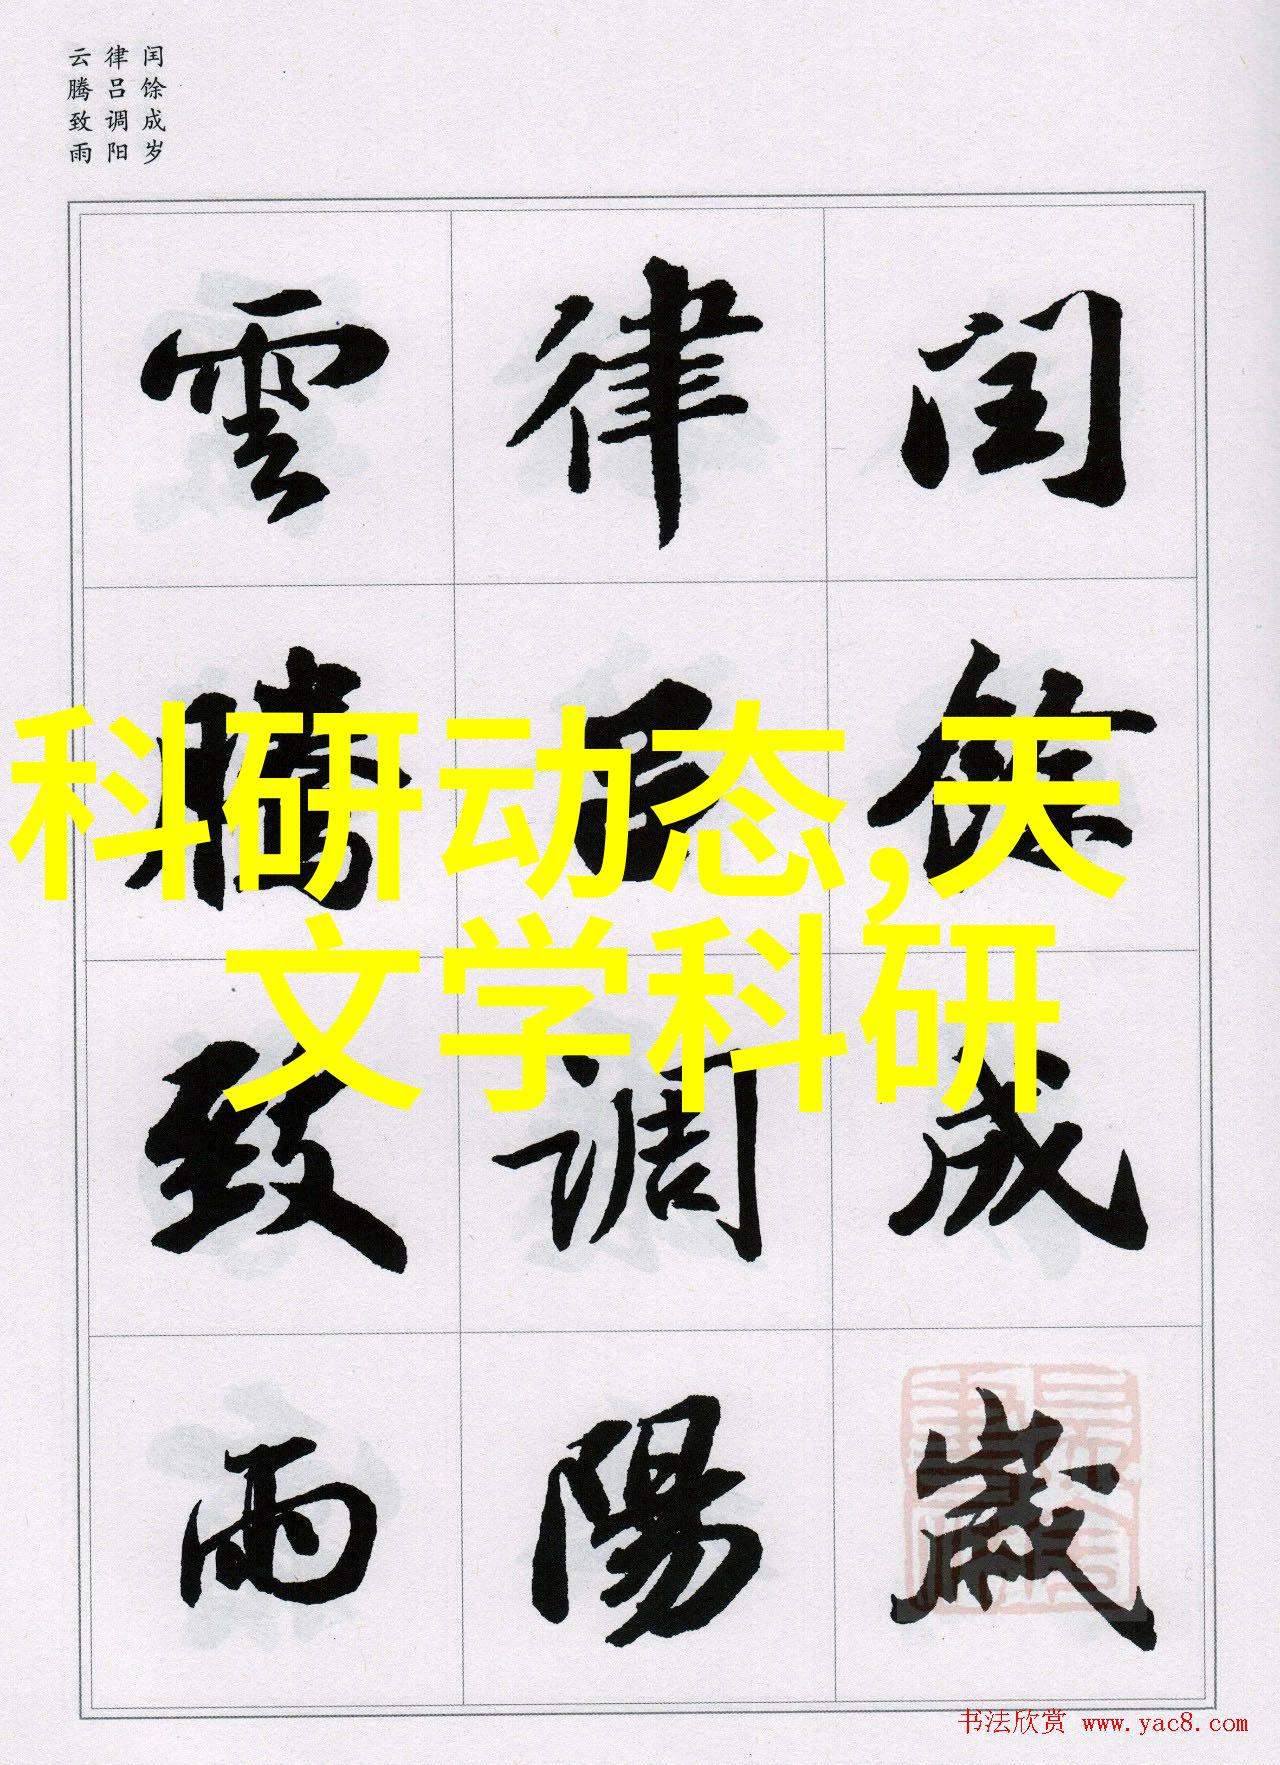 闰馀成岁
律吕调阳
云腾致雨
闰馀成歲
律吕調陽
雲騰致雨
科研动态,天
文学科研
书法欣赏 www.yac8.com